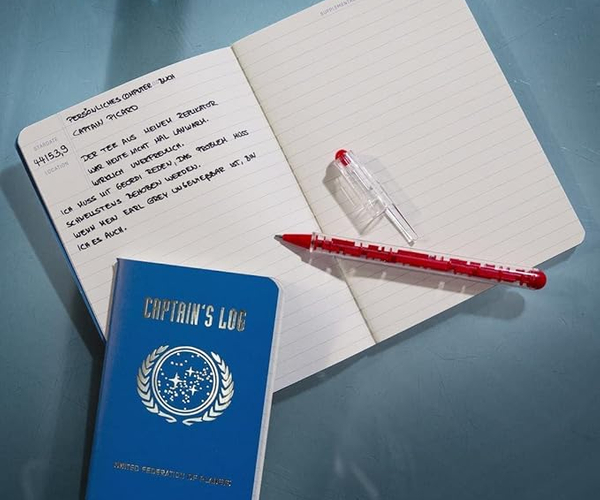 PERSÖNLICHES COMPUTER BUCH
CAPTAIN PICARD
STARDATE
44153,9
LOCATION
DER TEE AUS MEINEM REPLIKATOR
WAR HEUTE NICHT MAL LAUWARM.
WIRKLICH UNERFREULICH.
ICH MUSS MIT GEORDI REDEN, DAS PROBLEM MUSS
SCHNELLSTENS BEHOBEN WERDEN.
WENN MEIN EARL GREY UNGENIEßBAR IST, BIN
ICH ES AUCH.
SUPPLEMENTAL
CAPTAIN'S LOG
UNITED FEDERATION OF PLANETS